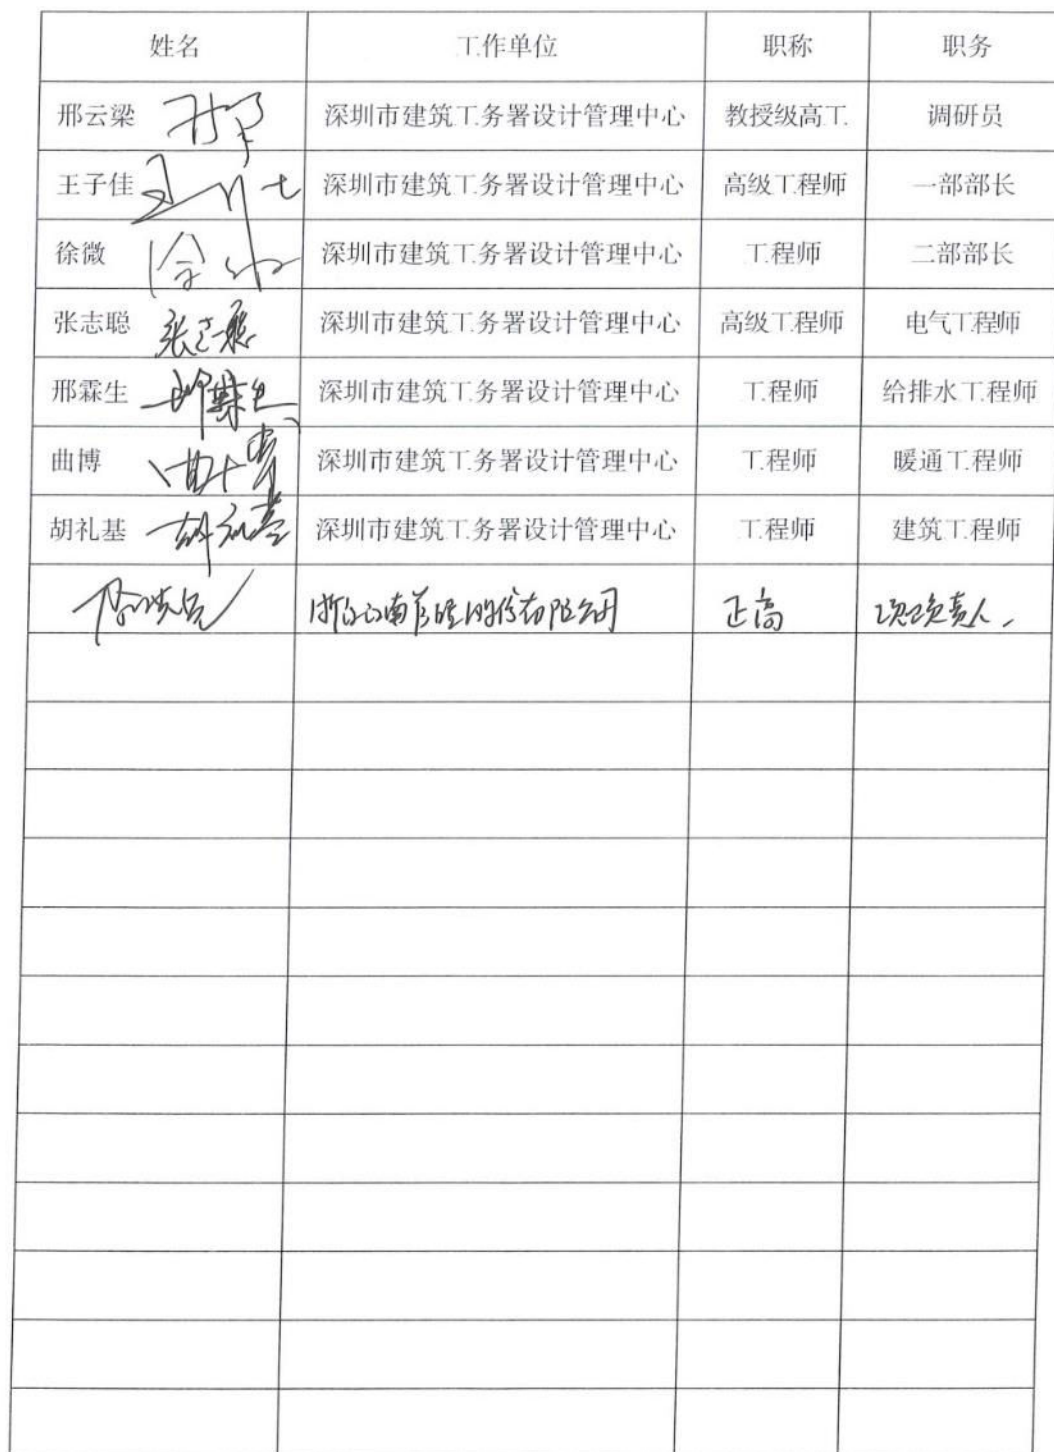 姓名 工作单位 职称 职务
邢云梁 深圳市建筑工务署设计管理中心 教授级高工 调研员
王子佳 深圳市建筑工务署设计管理中心 高级工程师 一部部长
徐微 徐微 深圳市建筑工务署设计管理中心 工程师 二部部长
张志聪 张志聪 深圳市建筑工务署设计管理中心 高级工程师 电气工程师
邢霖生 邢霖生 深圳市建筑工务署设计管理中心 工程师 给排水工程师
曲博 曲博 深圳市建筑工务署设计管理中心 工程师 暖通工程师
胡礼基 胡礼基 深圳市建筑工务署设计管理中心 工程师 建筑工程师
正高 负责人